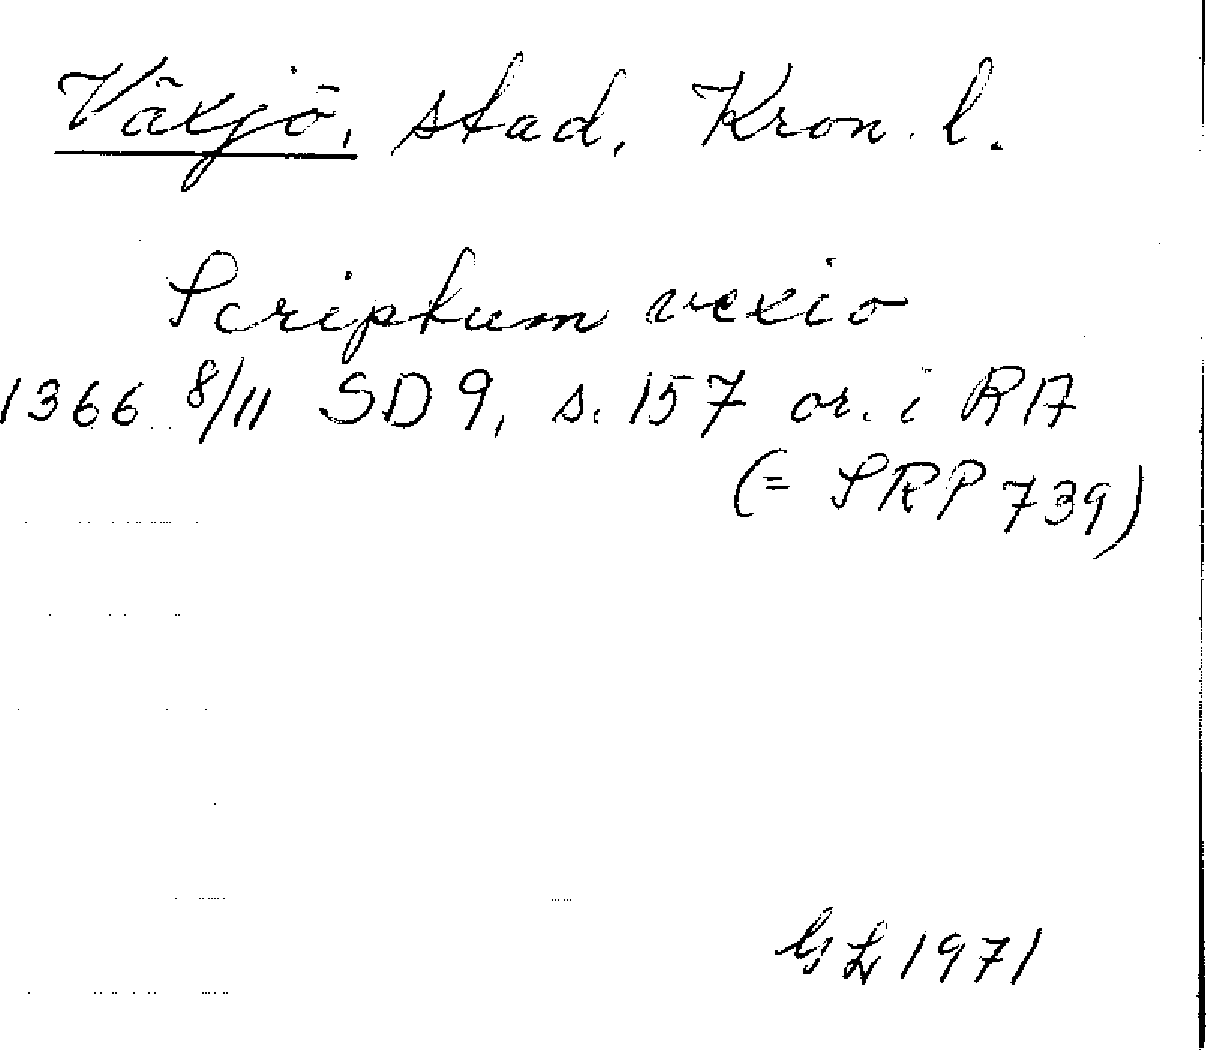 Växjö, stad, Kron. l.
Scriptum vexio
1366 8/11 SD 9, s. 157 or. i RA
(= SRP 739)
GL 1971